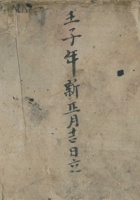 壬子年新正月吉日立